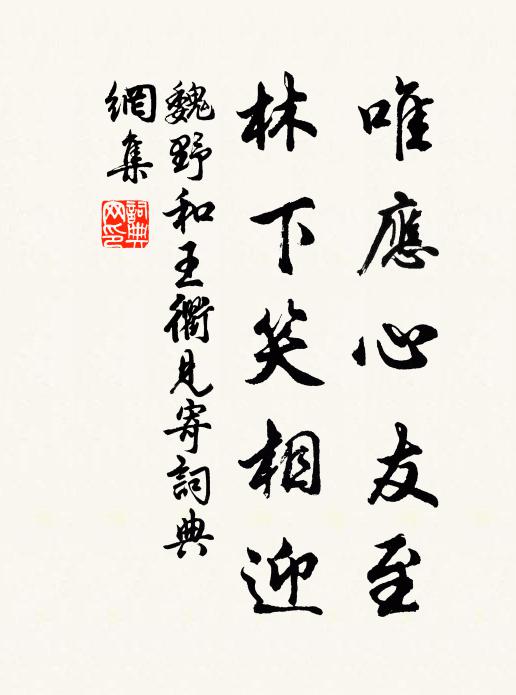 唯應心友至
林下笑相迎
魏野和王衢見寄詞典
網集
詞典網印